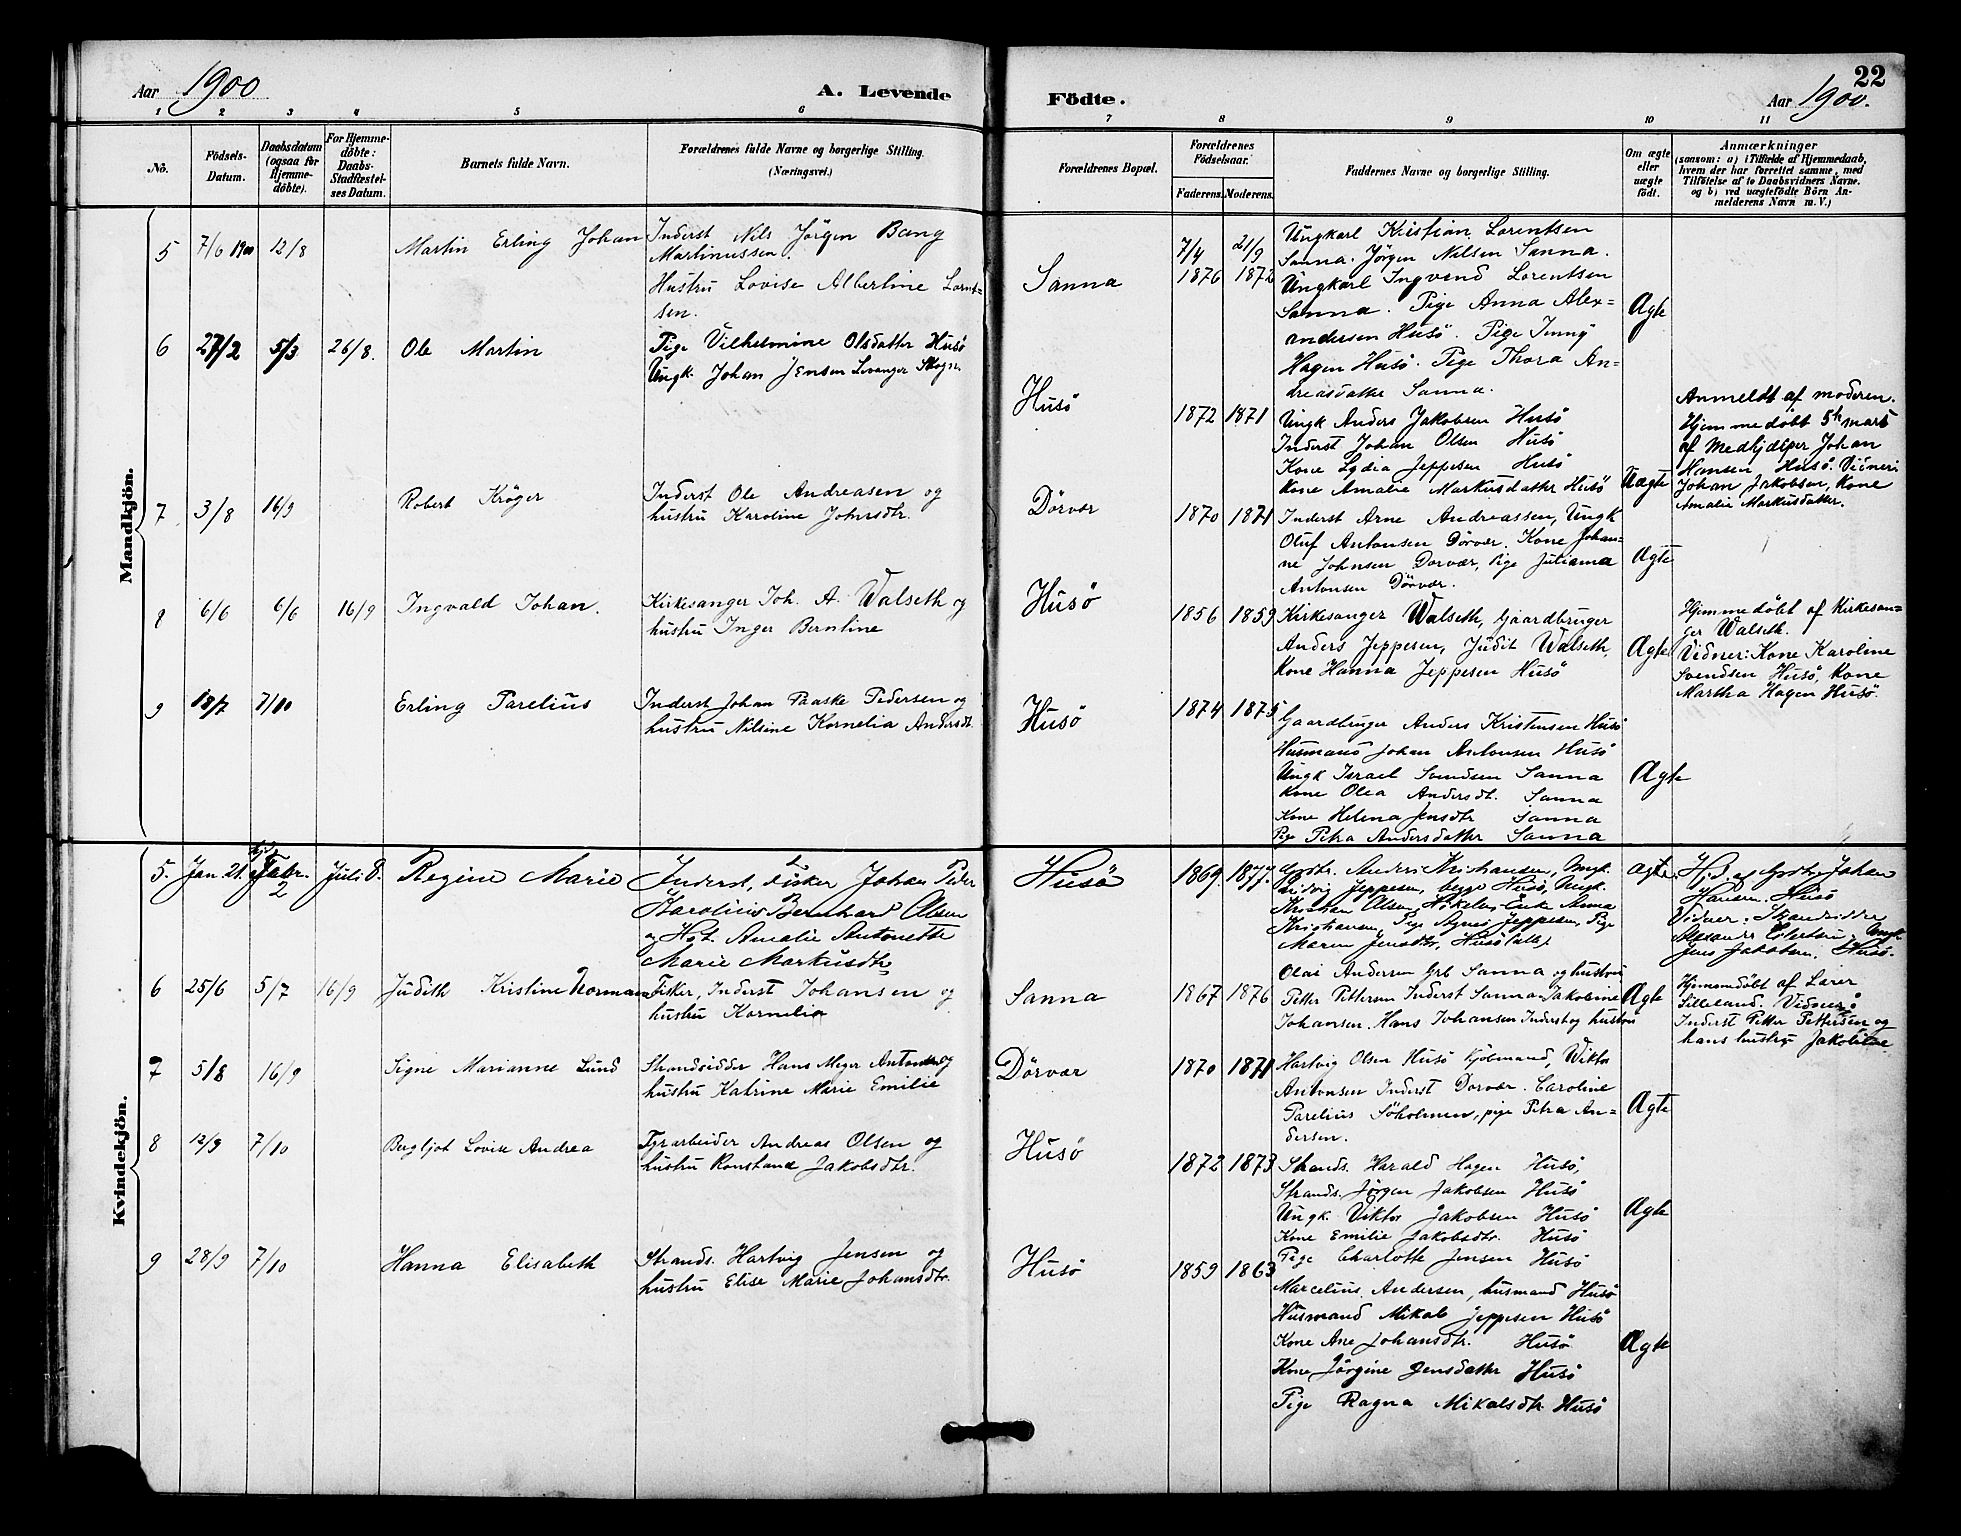 Aar 1900
A. Levende
Födte.
Aar 1900.
22
1 2 3 4 5 6 7 8 9 10 11
No.
Födsels-
Datum.
Daabsdatum
(ogsaa for
Hjemme-
döbte).
For Hjemme-
döbte:
Daabs-
Stadfæstel-
ses Datum.
Barnets fulde Navn.
Forældrenes fulde Navne og borgerlige Stilling.
(Næringsvei.)
Forældrenes Bopæl.
Forældrenes
Födselsaar.
Faderens. Moderens.
Faddernes Navne og borgerlige Stilling.
Om ægte
eller
uægte
födt.
Anmærkninger
(saasom: a) i Tilfælde af Hjemmedaab,
hvem der har forrettet samme, med
Tilföielse af to Daabsvidners Navne.
og b) ved uægtefödte Börn An-
melderens Navn m. V.)
Mandkjön.
5 7/6 1900 12/8
Martin Erling Johan
Inderst Nils Jörgen Bang
Martinussen.
Hustru Lovise Albertine Lornt-
sen.
Sanna
7/4 21/9
1876 1872
Ungkarl Kristian Lorentsen
Sanna. Jörgen Nilsen Sanna.
Ungkarl Ingvend Lorentsen
Sanna. Pige Anna Alex-
andersen Husö. Pige Jenny
Hagen Husö. Pige Thora An-
dreasdatter Sanna.
Ægte
6 27/2 5/3 26/8.
Ole Martin
Pige Vilhelmine Olsdatter Husö
Ungk. Johan Jensen Levanger Skogn.
Husö
1872 1871
Ungk Anders Jakobsen Husö
Inderst Johan Olsen Husö
Kone Lydia Jeppesen Husö
Kone Amalie Markusdatter Husö
Uægte
Anmeldt af moderen.
Hjemmedöbt 5te mars
af Medhjælper Johan
Hansen, Husö. Vidner:
Johan Jakobsen, Kone
Amalie Markusdatter.
7 3/8 16/9
Robert Kröger
Inderst Ole Andreasen og
hustru Karoline Johnsdtr.
Dörvær
1870 1871
Inderst Arne Andreassen, Ungk
Oluf Antonsen Dörvær. Kone Johan-
ne Johnsen Dorvær, Pige Juliana
Antonsen Dörvær.
Ægte
8 6/6 6/6 16/9
Ingvald Johan.
Kirkesanger Joh. A. Walseth og
hustru Inger Berntine
Husö
1856 1859
Kirkesanger Walseth, Gaardbruger
Anders Jeppesen, Judit Walseth,
Kone Hanna Jeppesen Husö
Ægte
Hjemmedöbt af Kirkesan-
ger Walseth.
Vidner: Kone Karoline
Svendsen Husö, Kone
Martha Hagen Husö.
9 18/7 7/10
Erling Parelius
Inderst Johan Paaske Pedersen og
hustru Nilsine Kornelia Andersdt.
Husö
1874 1875
Gaardbruger Anders Kristensen Husö
Husmand Johan Antonsen Husö
Ungk Israel Svendsen Sanna
Kone Olea Andersdt. Sanna
Kone Helena Jensdtr Sanna
Pige Petra Andersdatter Sanna
Ægte
Kvindekjön.
5. Jan 21. Febr. 2 Juli 8.
Regine Marie
Inderst, Fisker Johan Peder
Karolius Bernhard Olsen
og Hst. Amalie Antonette
Marie Markusdtr
Husö
1869. 1877.
Gbdr. Anders Kristiansen, Ungk.
Ludvig Jeppesen, begge Husö, Ungk.
Kristian Olsen, Enke Anna
Kristiansen, Pige Agnes Jeppesen, Pige
Maren Jensdtr, Husö (alle).
ægte.
Hjd. af Gbdr. Johan
Hansen, Husö
Vidner: Strandsidder
Alexander Eilertsen, Ungk.
Jens Jakobsen, Husö.
6 25/6 5/7 16/9
Judith Kristine Normann
Fisker, Inderst Johansen og
hustru Kornelia
Sanna
1867 1876
Olai Andersen Grb Sanna og hustru
Petter Pettersen Inderst Sanna Jakobine
Johansen. Hans Johansen Inderst og hustru
Ægte
Hjemmedöbt af Lærer
Silleland. Vidner:
Inderst Petter Pettersen og
hans hustru Jakobine
7 5/8 16/9
Signe Marianne Lund
Strandsidder Hans Meyer Antonsen og
hustru Katrine Marie Emilie
Dörvær
1870 1871
Hartvig Olsen Husö Kjöbmand, Wiktor
Antonsen Inderst Dorvær. Caroline
Parelius Söholmen, pige Petra An-
dersen.
Ægte
8 12/9 7/10
Bergljot Lovise Andrea
Fyrarbeider Andreas Olsen og
hustru Konstanse Jakobsdtr.
Husö
1872 1873
Strands. Harald Hagen Husö,
Strands. Jörgen Jakobsen Husö
Ungk. Viktor Jakobsen Husö
Kone Emilie Jakobsdtr. Husö
Pige Charlotte Jensen Husö
Ægte
9 28/9 7/10
Hanna Elisabeth
Strands. Hartvig Jensen og
hustru Elise Marie Johansdtr.
Husö
1859 1863
Marcelius Andersen, husmand Husö
Husmand Mikal Jeppesen Husö
Kone Ane Johansdtr. Husö
Kone Jörgine Jensdatter Husö
Pige Ragna Mikalsdtr. Husö
Ægte